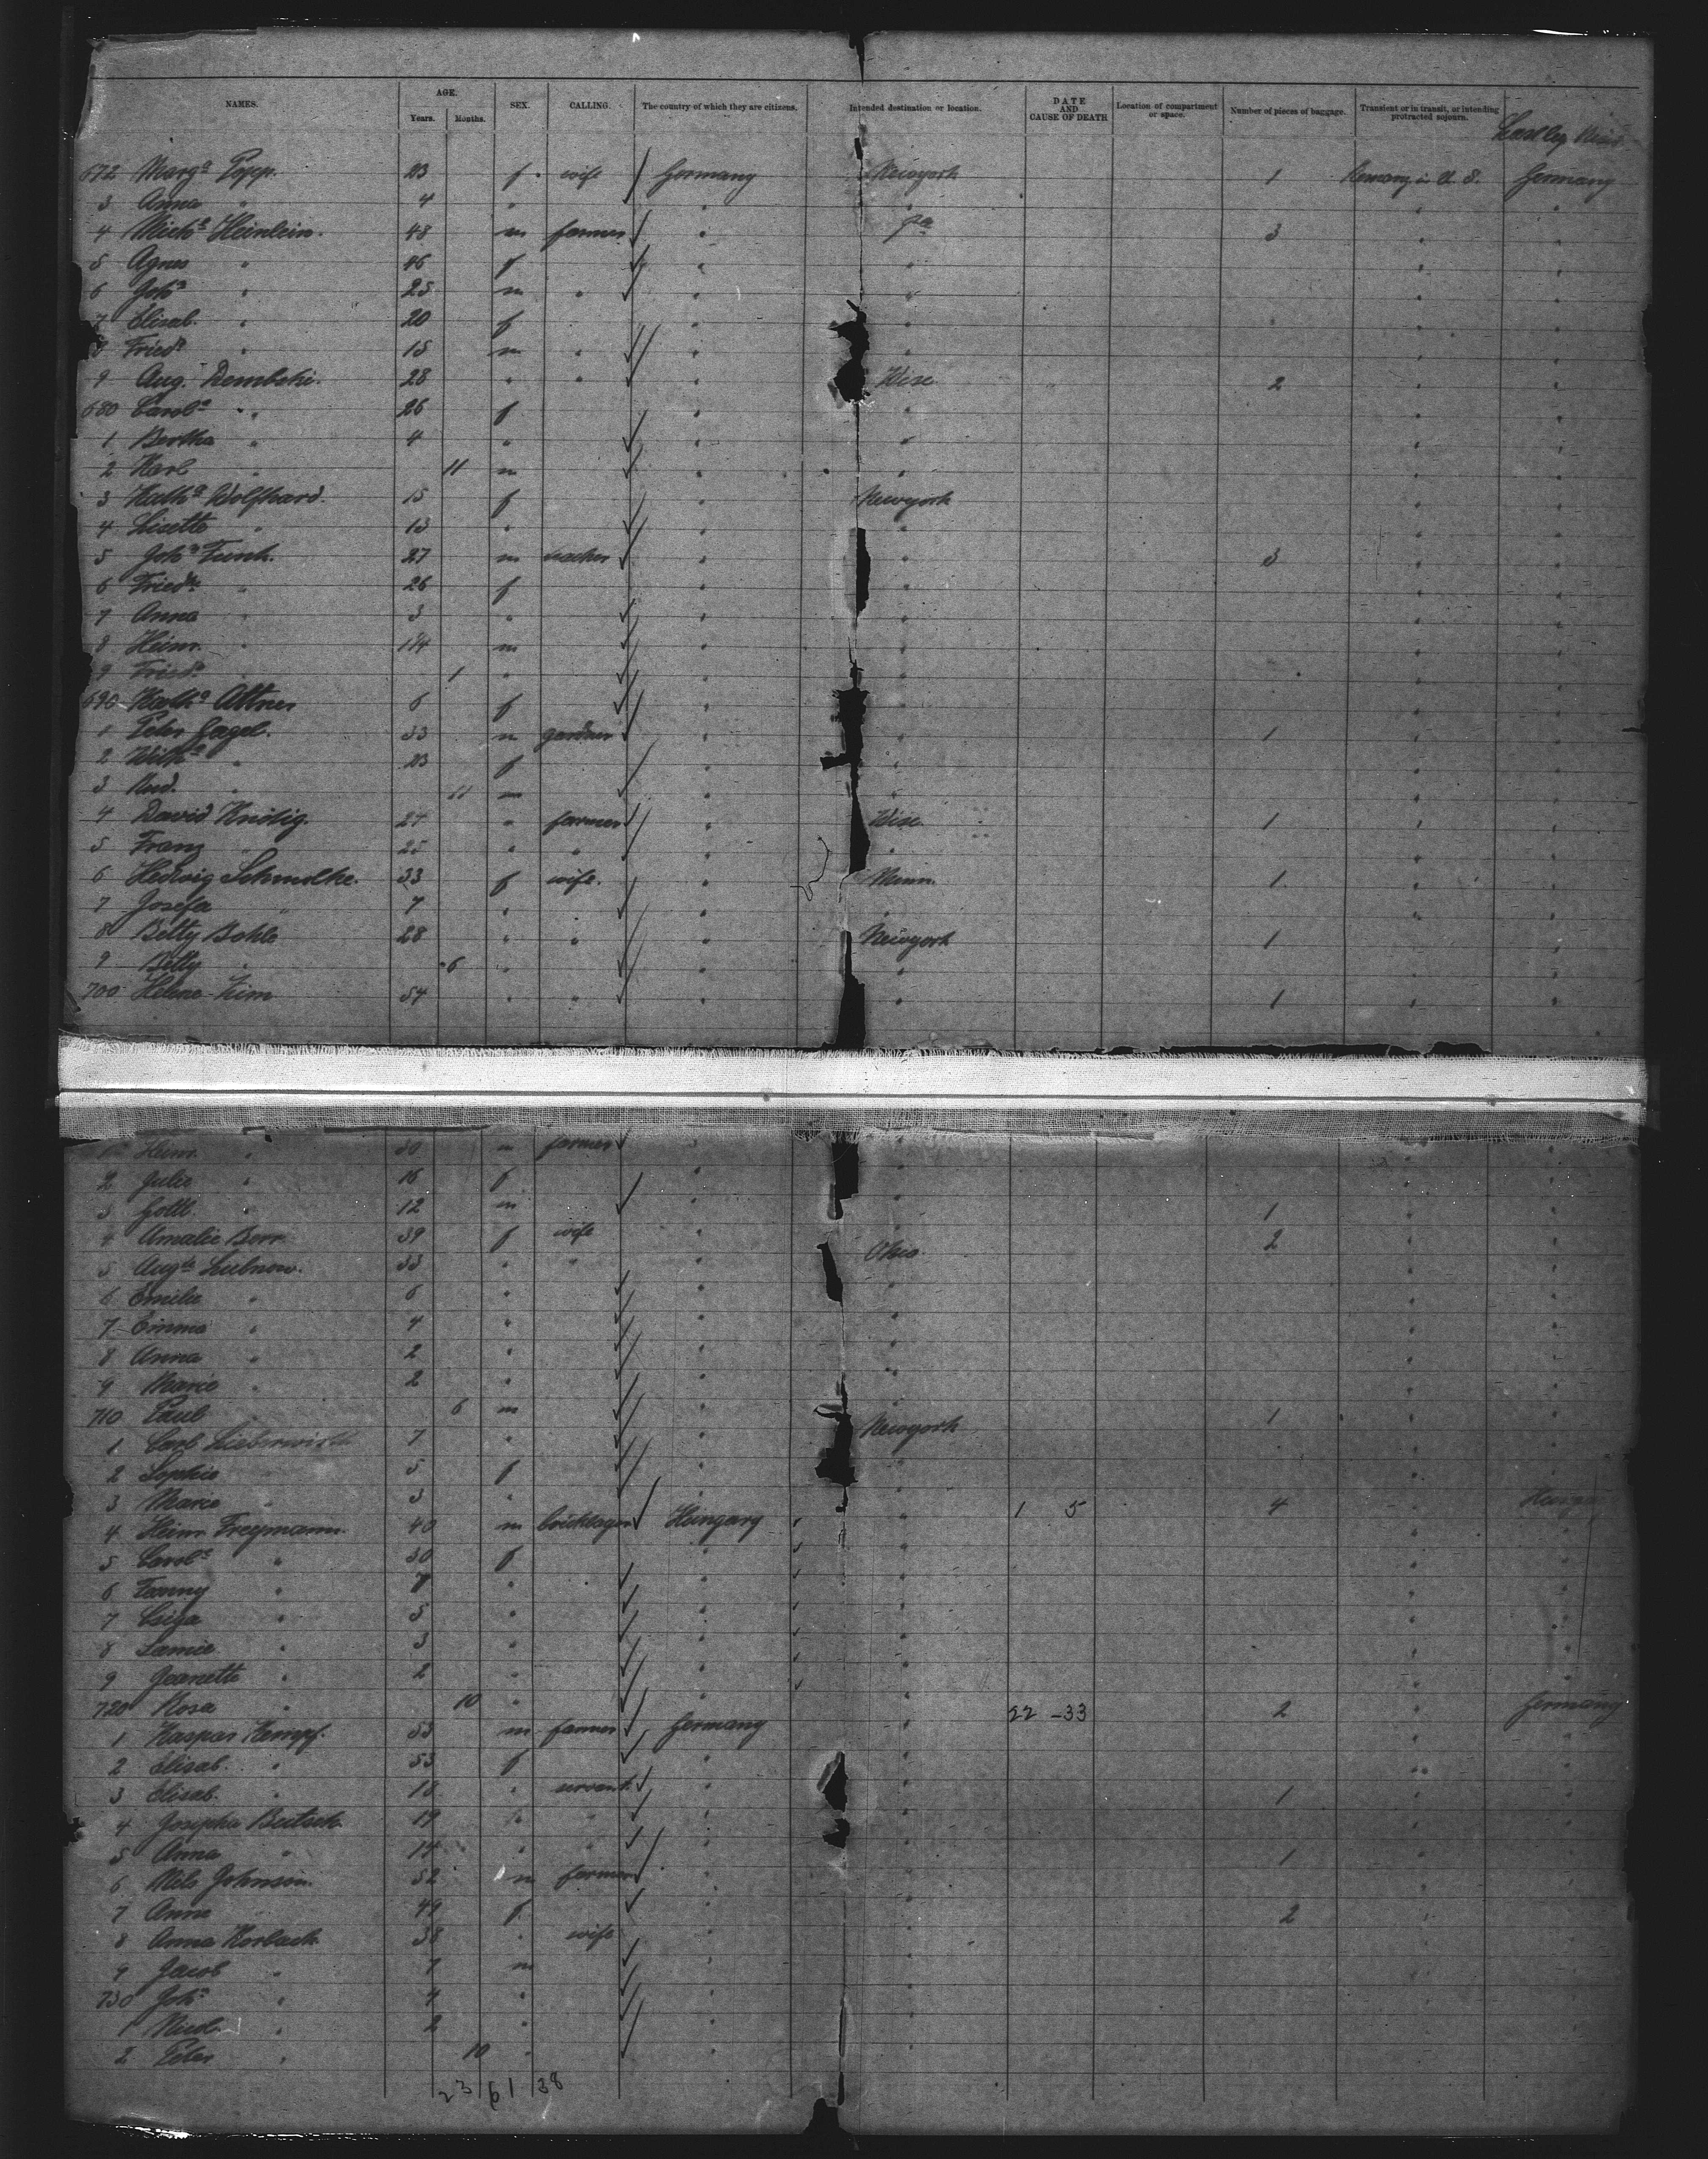 NAMES. AGE. Years. Months. SEX. CALLING. The country of which they are citizens. Intended destination or location. DATE AND CAUSE OF DEATH Location of compartment or space. Number of pieces of baggage. Transient or in transit, or intending protracted sojourn.
672 Marga Popp. 23 f. wife Germany Newyork 1 Remang in U. S. Germany
3 Anna " 4 "
4 Micha Heinlein. 48 m farmer " Pa 3 " "
5 Agnes " 46 f " " " "
6 Joha " 25 m " " " " "
7 Elisab. " 20 f " " " "
8 Friedr " 15 m " " " " "
9 Aug. Dembski. 28 " " " Wisc. 2 " "
680 Carola " 26 f " " " "
1 Bertha " 4 " " " " "
2 Karl " 11 m " " " "
3 Katha Wolfhard. 15 f " Newyork " "
4 Lisette " 13 " " " " "
5 Joha Funk. 27 m teacher " " 3 " "
6 Friedke " 26 f " " " "
7 Anna " 3 " " " " "
8 Heinr. " 1/4 m " " " "
9 Friedr " 1 " " " " "
690 Katha Attner 6 f " " " "
1 Peter Gagel. 33 m gardner " " 1 " "
2 Wilha " 23 f " " " "
3 Rud. " 11 m " " " "
4 David Knölig. 27 " farmer " Wisc. 1 " "
5 Franz " 25 " " " " " "
6 Hedwig Schmolke. 33 f wife. " Minn. 1 " "
7 Josefa " 7 " " " " "
8 Betty Bohle 28 " " " Newyork 1 " "
9 Betty " 6 " " " " "
700 Helene Zim 54 " " " " 1 " "
1 Heinr. " 30 m farmer " " " "
2 Julie " 16 f " " " "
3 Gottl. " 12 m " " 1 " "
4 Amalie Borr 39 f wife " " 2 " "
5 Augte Lubnow. 33 " " " Ohio. " "
6 Emilie " 6 " " " " "
7 Emma " 4 " " " " "
8 Anna " 2 " " " " "
9 Marie " 2 " " " " "
710 Paul " 6 m " " 1 " "
1 Carl Lieberwirth 7 " " Newyork " "
2 Sophie " 5 f " " " "
3 Marie " 3 " " " " "
4 Heinr. Freymann. 40 m bricklayer Hungary " 1 5 4 " Hungary
5 Carola " 30 f " " " "
6 Fanny " 7 " " " " "
7 " 5 " " " " "
8 " 3 " " " " "
9 Jeanette " 2 " " " " "
720 Rosa " 10 " " " " "
1 Kaspar Kempf. 53 m farmer Germany " 22 - 33 2 " Germany
2 Elisab. " 53 f " " " "
3 Elisab. " 18 " servant " " 1 " "
4 Josepha Beitsch 19 " " " " " "
5 Anna " 14 " " " " " "
6 Nels Johnson. 52 m farmer " " 1 " "
7 Anna " 49 f " " " "
8 Anna Korbach. 38 " wife " " 2 " "
9 Jacob " 7 m " " " "
730 Joha " 4 " " " " "
1 Nicol. " 2 " " " " "
2 Peter " 10 " " " " "
23 61 38